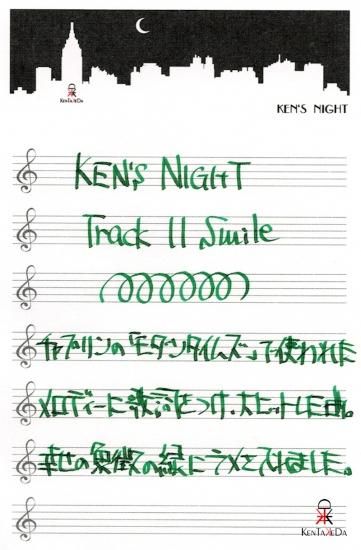 KENTAKEDA
KEN'S NIGHT
KEN'S NIGHT
Track 11 Smile
チャップリンの「モダンタイムズ」で使われた
メロディーに歌詞をつけ、大ヒットした曲。
幸せの象徴の緑にラメを入れました。
KENTAKEDA